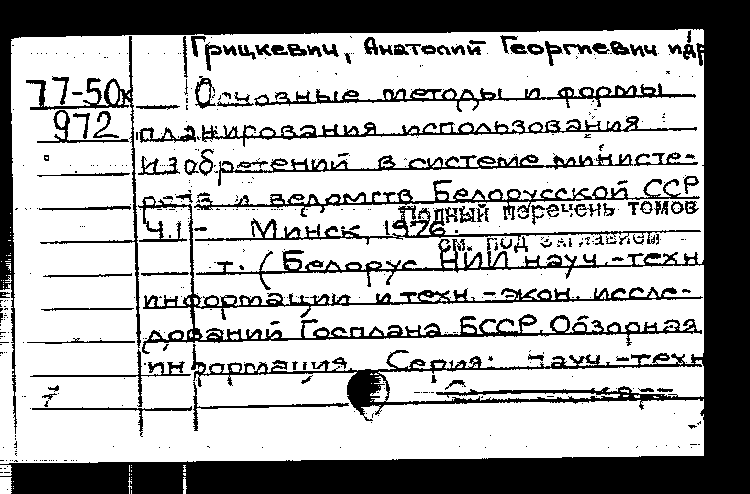 Грицкевич, Анатолий Георгиевич и др
77-50к Основные методы и формы
972 планирования использования
изобретений в системе министе-
рств и ведомств Белорусской ССР
Полный перечень томов
Ч.I - Минск, 1976.
см. под заглавием
т. (Белорус. НИИ науч.-техн.
информации и техн.-экон. иссле-
дований Госплана БССР. Обзорная
информация. Серия: Науч.-техн
7